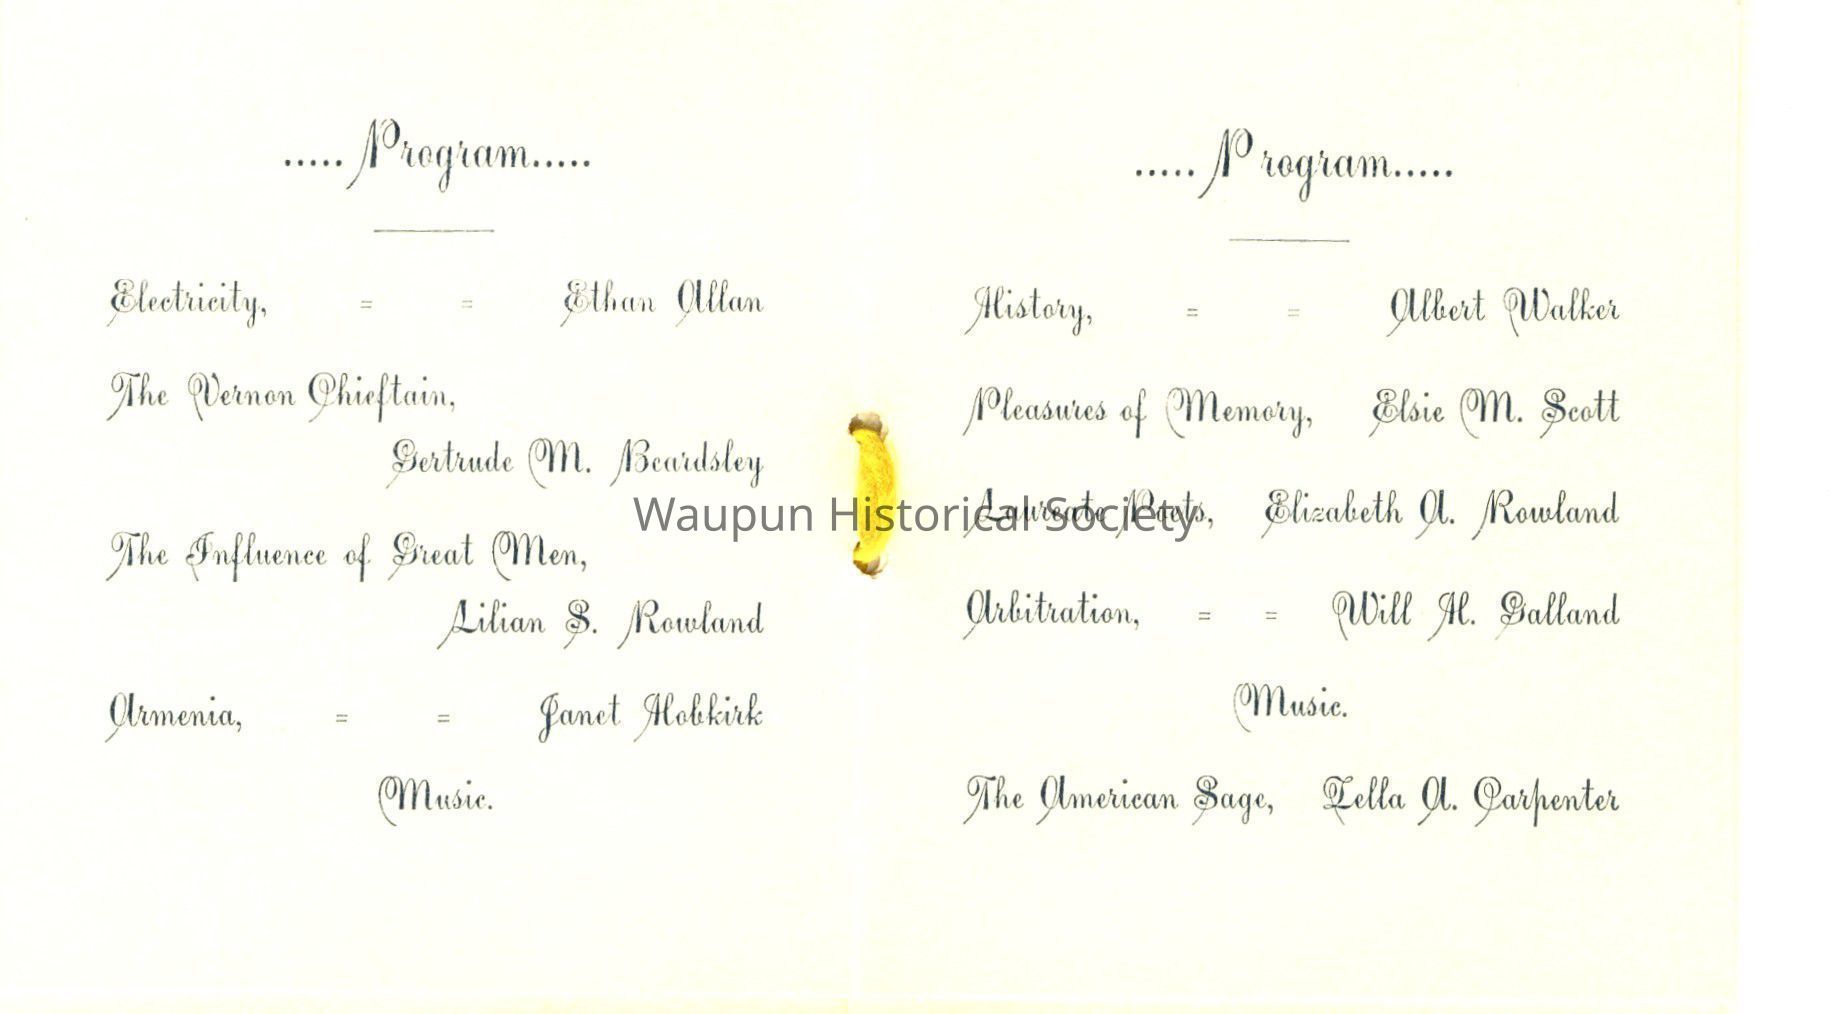 .....Program.....
Electricity, = = Ethan Allan
The Vernon Chieftain,
Gertrude M. Beardsley
The Influence of Great Men,
Lilian S. Rowland
Armenia, = = Janet Hobkirk
Music.
.....Program.....
History, = = Albert Walker
Pleasures of Memory, Elsie M. Scott
Laureate Poets, Elizabeth A. Rowland
Arbitration, = = Will H. Galland
Music.
The American Sage, Zella A. Carpenter
Waupun Historical Society